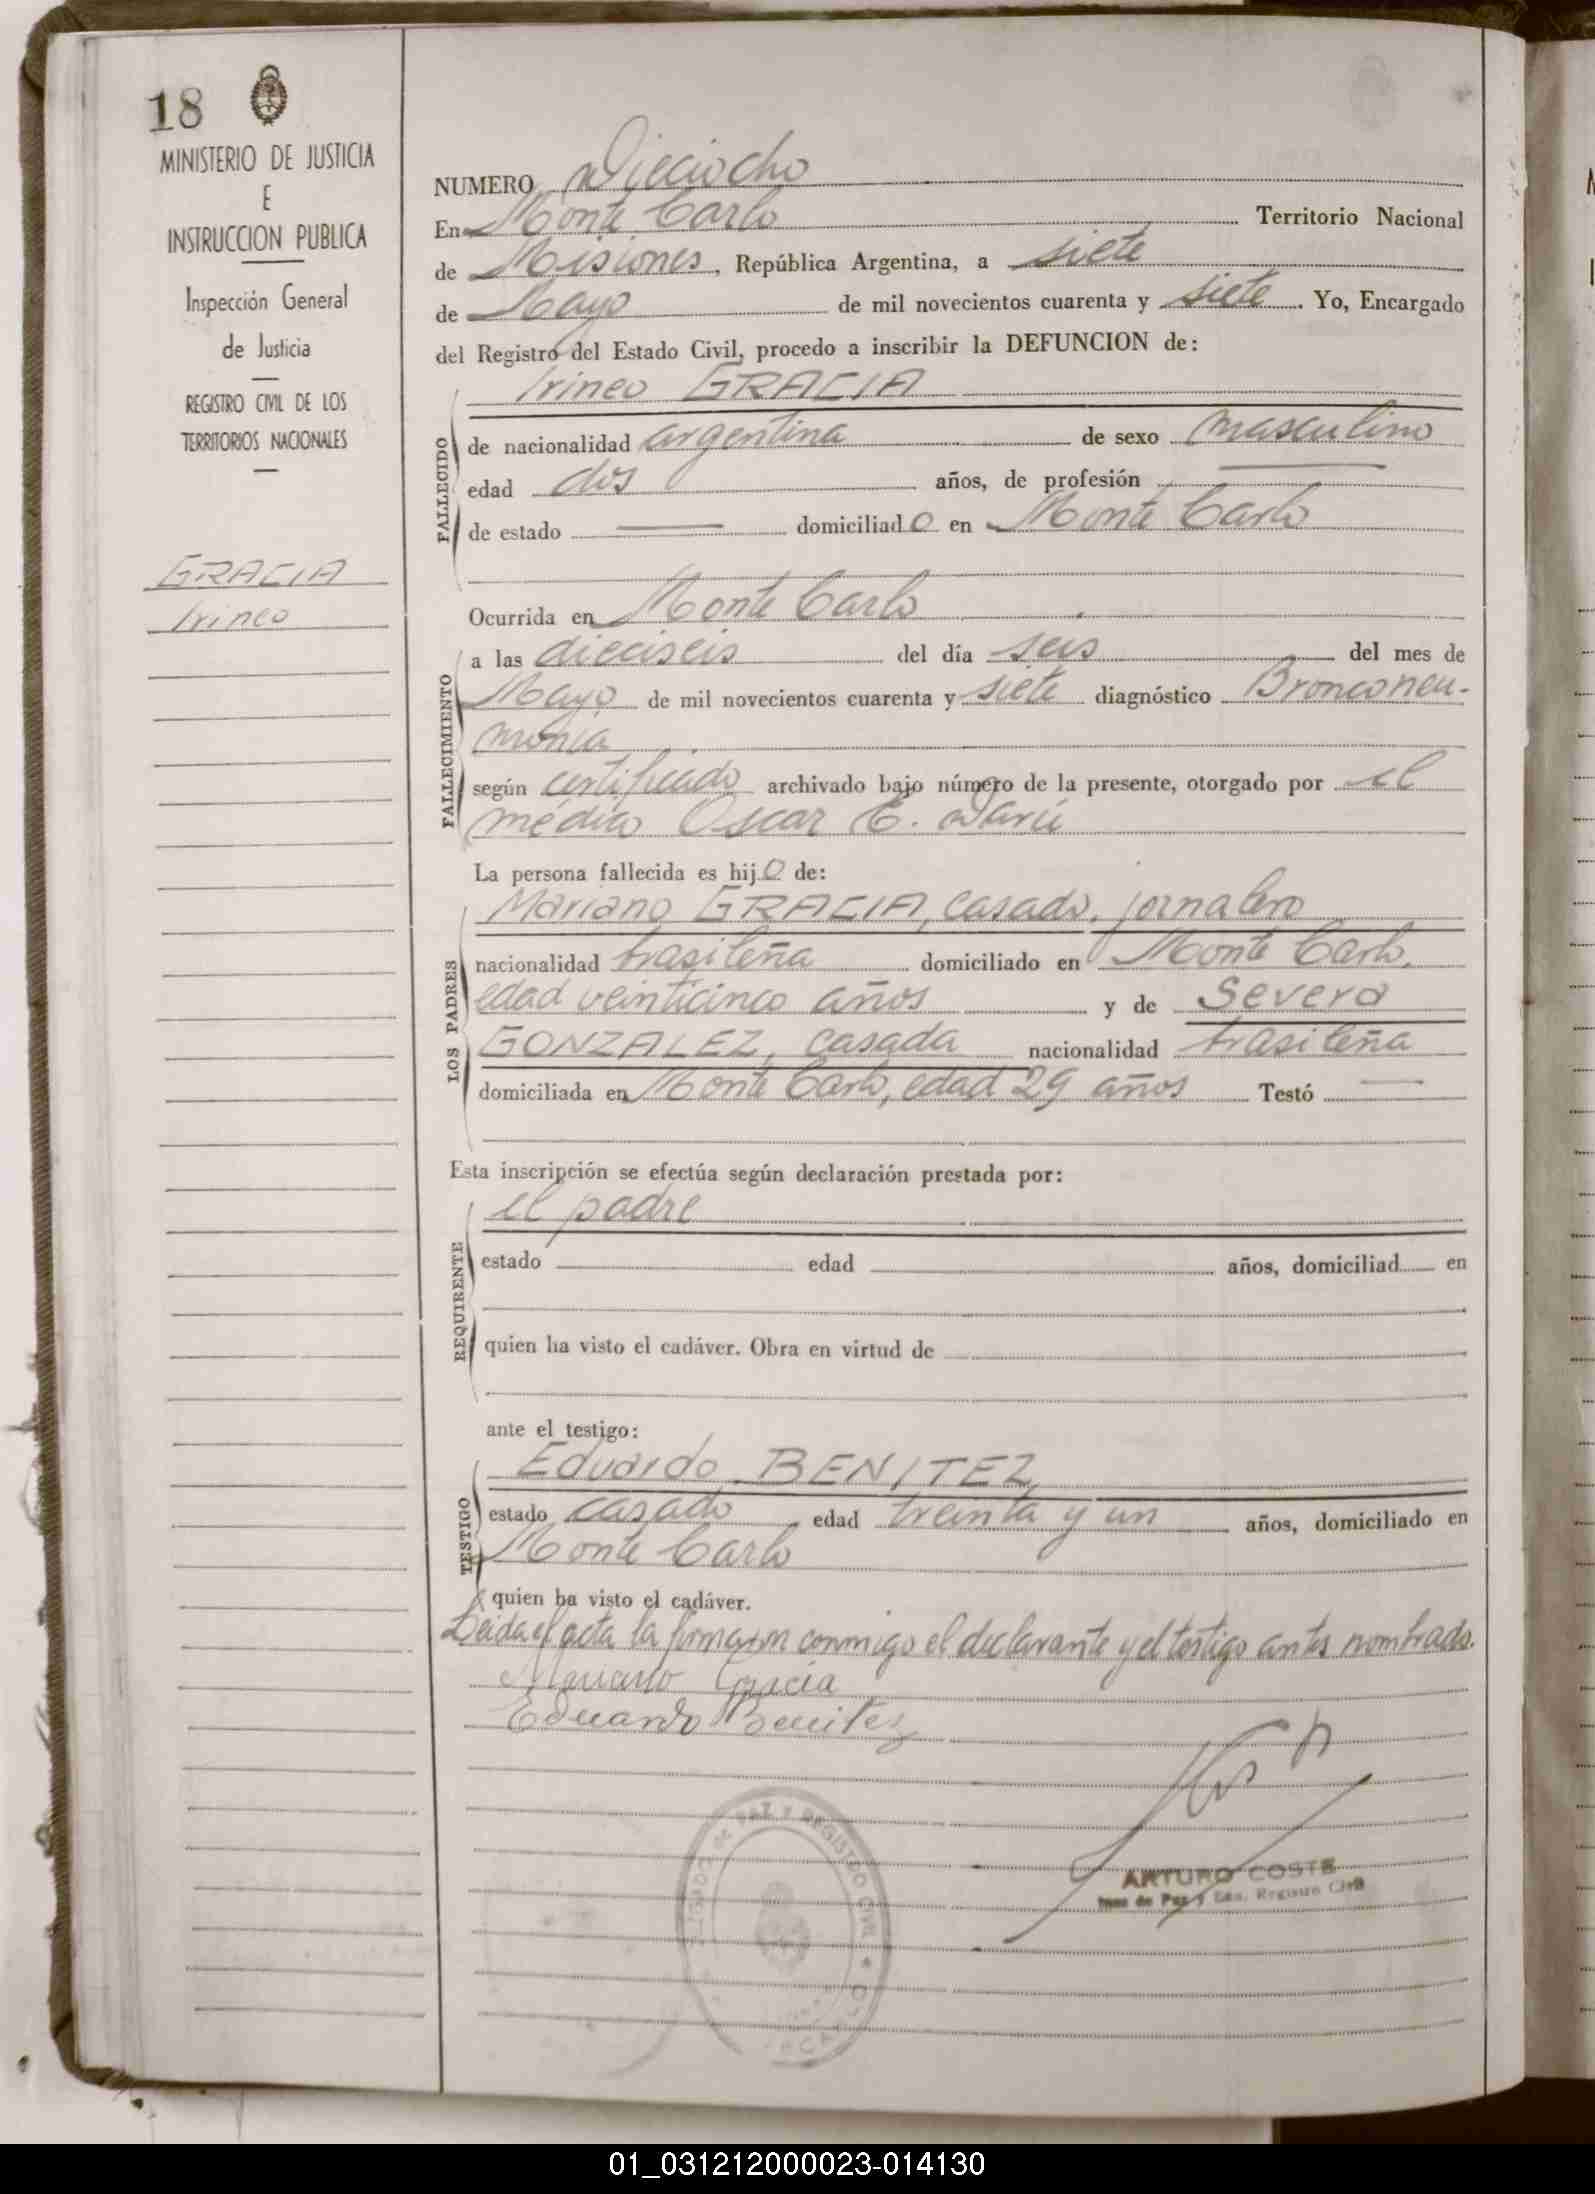 18
MINISTERIO DE JUSTICIA
E
INSTRUCCION PUBLICA
Inspección General
de Justicia
REGISTRO CIVIL DE LOS
TERRITORIOS NACIONALES
GRACIA
Irineo
NUMERO Dieciocho
En Monte Carlo Territorio Nacional
de Misiones, República Argentina, a siete
de Mayo de mil novecientos cuarenta y siete. Yo, Encargado
del Registro del Estado Civil, procedo a inscribir la DEFUNCION de:
FALLECIDO
Irineo GRACIA
de nacionalidad argentina de sexo masculino
edad dos años, de profesión
de estado domiciliado en Monte Carlo
FALLECIMIENTO
Ocurrida en Monte Carlo
a las dieciseis del día seis del mes de
Mayo de mil novecientos cuarenta y siete diagnóstico Bronconeu-
monia
según certificado archivado bajo número de la presente, otorgado por el
médico Oscar E. Darú
La persona fallecida es hijo de:
LOS PADRES
Mariano GRACIA, casado, jornalero
nacionalidad brasileña domiciliado en Monte Carlo,
edad veinticinco años y de Severa
GONZALEZ, casada nacionalidad brasileña
domiciliada en Monte Carlo, edad 29 años Testó
Esta inscripción se efectúa según declaración prestada por:
REQUIRENTE
el padre
estado edad años, domiciliad en
quien ha visto el cadáver. Obra en virtud de
ante el testigo:
TESTIGO
Eduardo BENITEZ
estado casado edad treinta y un años, domiciliado en
Monte Carlo
quien ha visto el cadáver.
Leida el acta la firmaron conmigo el declarante y el testigo antes nombrado.
Mariano Gracia
Eduardo Benitez
JUZGADO DE PAZ Y REGISTRO CIVIL
ARTURO COSTE
Juez de Paz y Enc. Registro Civil
01_031212000023-014130